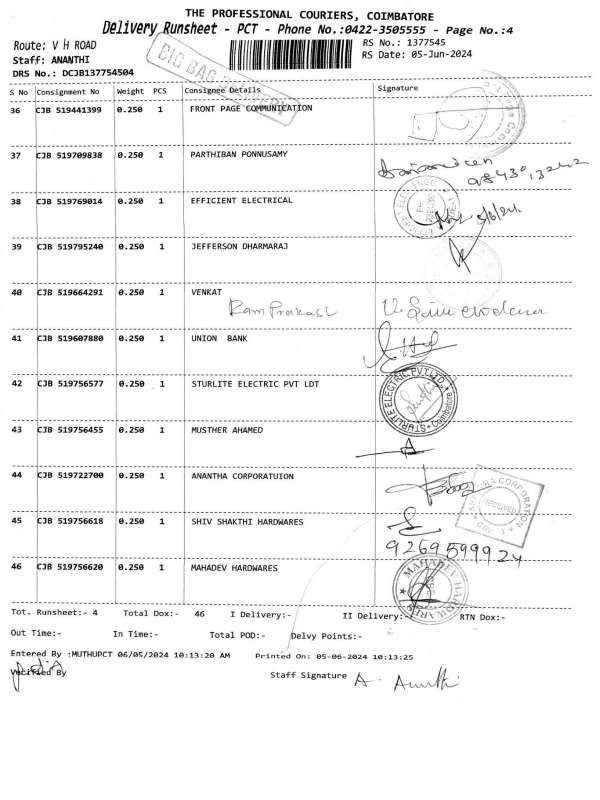 THE PROFESSIONAL COURIERS, COIMBATORE
Delivery Runsheet - PCT - Phone No.:0422-3505555 - Page No.:4
Route: V H ROAD
RS No.: 1377545
Staff: ANANTHI
RS Date: 05-Jun-2024
DRS No.: DCJB137754504
BIG BAG
S No Consignment No Weight PCS Consignee Details Signature
36 CJB 519441399 0.250 1 FRONT PAGE COMMUNICATION
37 CJB 519709838 0.250 1 PARTHIBAN PONNUSAMY
38 CJB 519769014 0.250 1 EFFICIENT ELECTRICAL
5/6/24
39 CJB 519795240 0.250 1 JEFFERSON DHARMARAJ
40 CJB 519664291 0.250 1 VENKAT
Ram Prakash
41 CJB 519607880 0.250 1 UNION BANK
42 CJB 519756577 0.250 1 STURLITE ELECTRIC PVT LDT
STURLITE ELECTRIC PVT LTD. Coimbatore
43 CJB 519756455 0.250 1 MUSTHER AHAMED
44 CJB 519722700 0.250 1 ANANTHA CORPORATUION
CORPORATION
RECEIVED
45 CJB 519756618 0.250 1 SHIV SHAKTHI HARDWARES
9269599924
46 CJB 519756620 0.250 1 MAHADEV HARDWARES
MAHADEV HARDWARES
Tot. Runsheet:- 4 Total Dox:- 46 I Delivery:- II Delivery:- RTN Dox:-
Out Time:- In Time:- Total POD:- Delvy Points:-
Entered By :MUTHUPCT 06/05/2024 10:13:20 AM Printed On: 05-06-2024 10:13:25
Verified By
Staff Signature